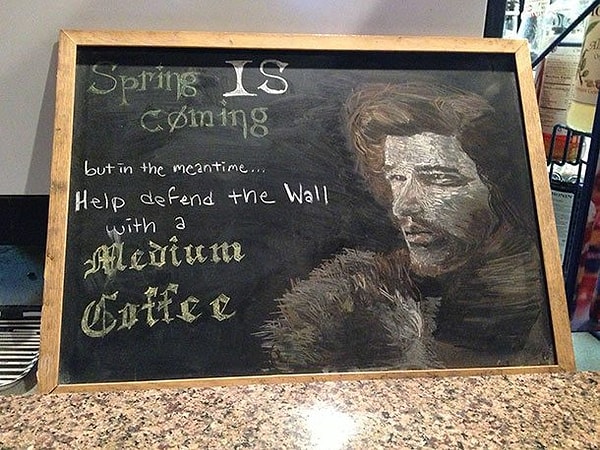 Spring IS
cøming
but in the meantime...
Help defend the Wall
with a
Medium
Coffee